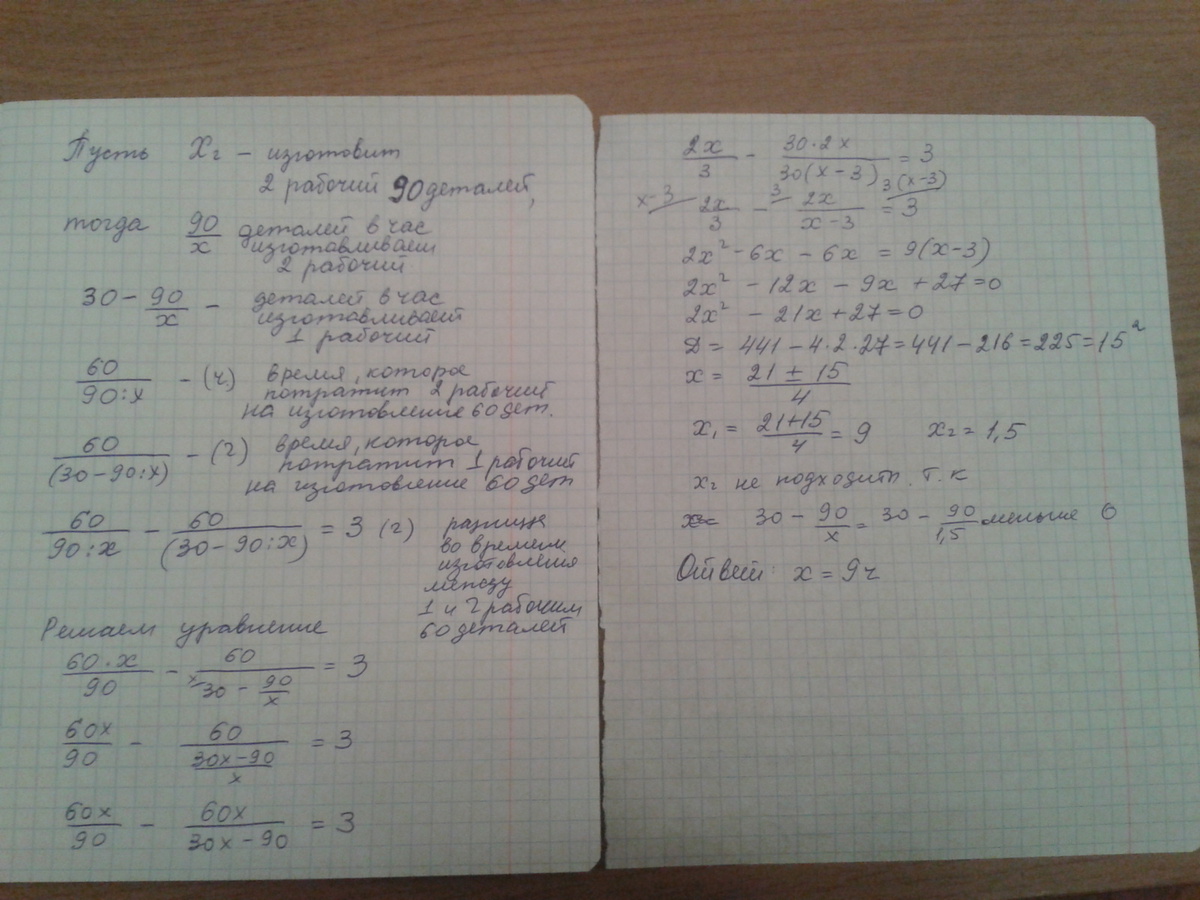 Пусть X₂ – изготовит
2 рабочий 90 деталей,
тогда 90/x деталей в час
изготавливает
2 рабочий.
30 – 90/x – деталей в час
изготавливает
1 рабочий
60/(90:x) – (ч.) время, которое
потратит 2 рабочий
на изготовление 60 дет.
60/(30 – 90:x) – (ч) время, которое
потратит 1 рабочий
на изготовление 60 дет
60/(90:x) – 60/(30 – 90:x) = 3 (ч) разница
во времени
изготовления
между
1 и 2 рабочим
60 деталей
Решаем уравнение
60·x/90 – 60/(30 – 90/x) = 3
60x/90 – 60/((30x – 90)/x) = 3
60x/90 – 60x/(30x – 90) = 3
2x/3 – 30·2x/(30(x – 3)) = 3
x-3 2x/3 – 3 2x/(x – 3) = 3 3(x-3)
2x² – 6x – 6x = 9(x – 3)
2x² – 12x – 9x + 27 = 0
2x² – 21x + 27 = 0
D = 441 – 4·2·27 = 441 – 216 = 225 = 15²
x = (21 ± 15)/4
x₁ = (21+15)/4 = 9 x₂ = 1,5
x₂ не подходить т. к
x= 30 – 90/x = 30 – 90/1,5 меньше 0
Ответ: x = 9ч